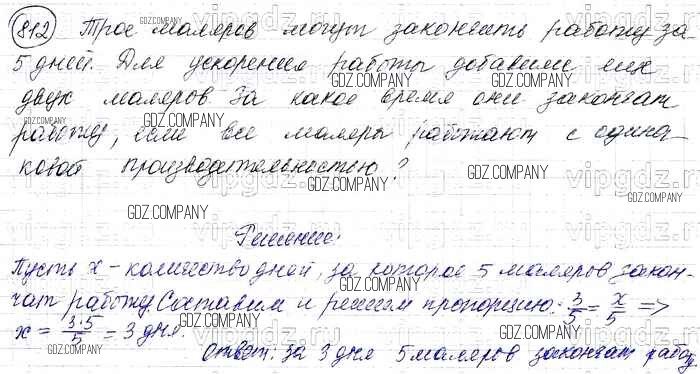 812 Трое маляров могут закончить работу за
5 дней. Для ускорения работы добавили еще
двух маляров. За какое время они закончат
работу, если все маляры работают с одина-
ковой производительностью?
Решение:
Пусть x - количество дней, за которое 5 маляров закон-
чат работу. Составим и решим пропорцию: 3/5 = x/5 =>
x = 3·5/5 = 3 дня.
Ответ: за 3 дня 5 маляров закончат работу
GDZ.COMPANY
vipgdz.ru